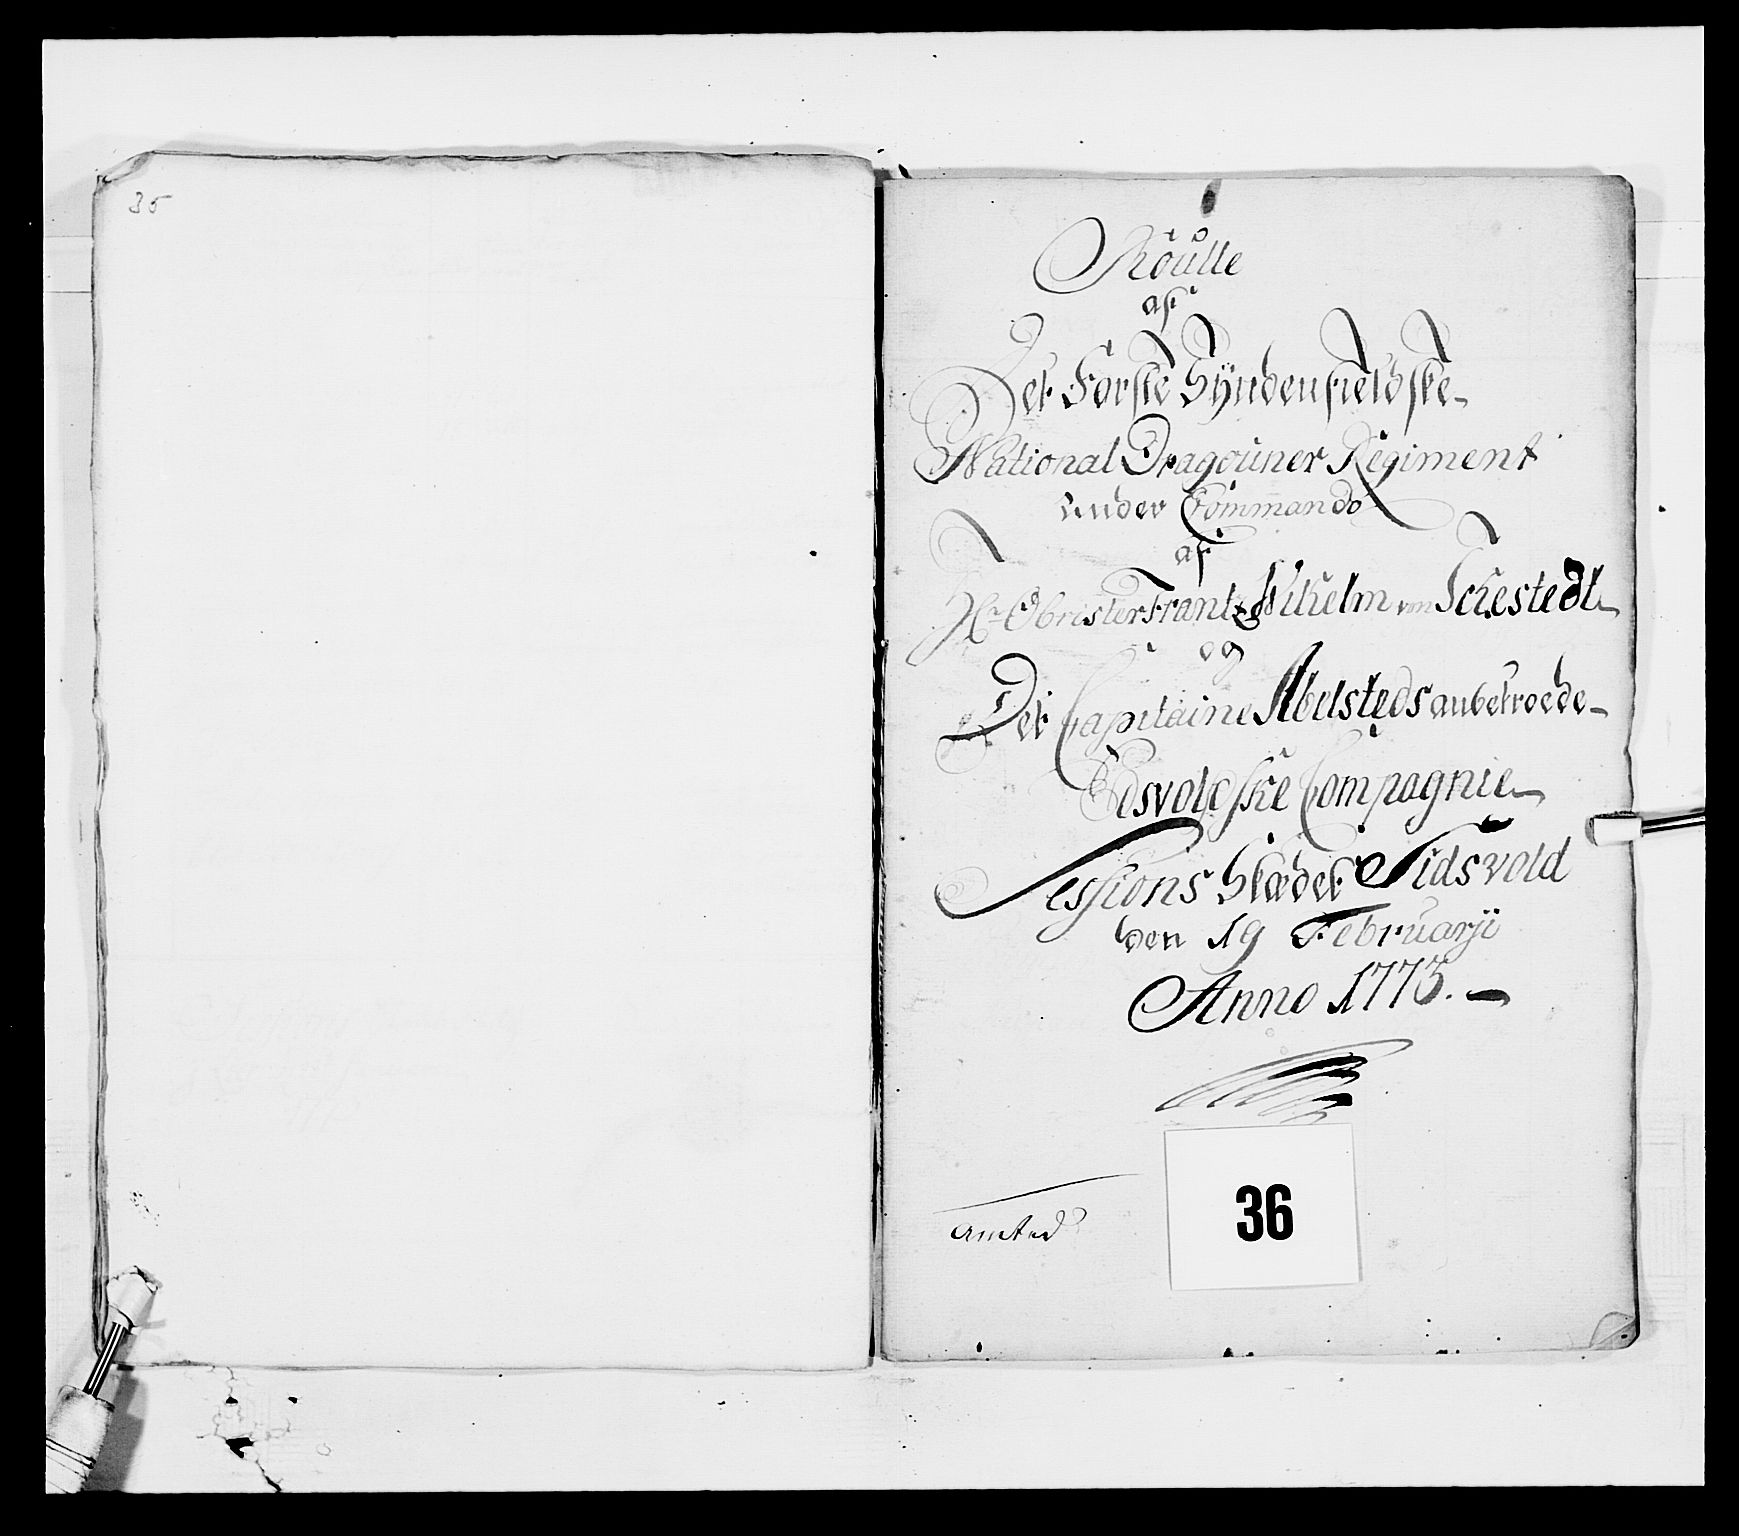 35
Roulle
af
Det Første Syndenfieldske
National Dragouner Regiment
Under Commando
af
Hr Obrister Frantz Wilhelm von Schestedt
og
Det Capitaine Abelsteds anbetroede
Edsvoldske Compagnie
Sessions Stædet Eidsvold
den 19 Februarji
Anno 1773.
36